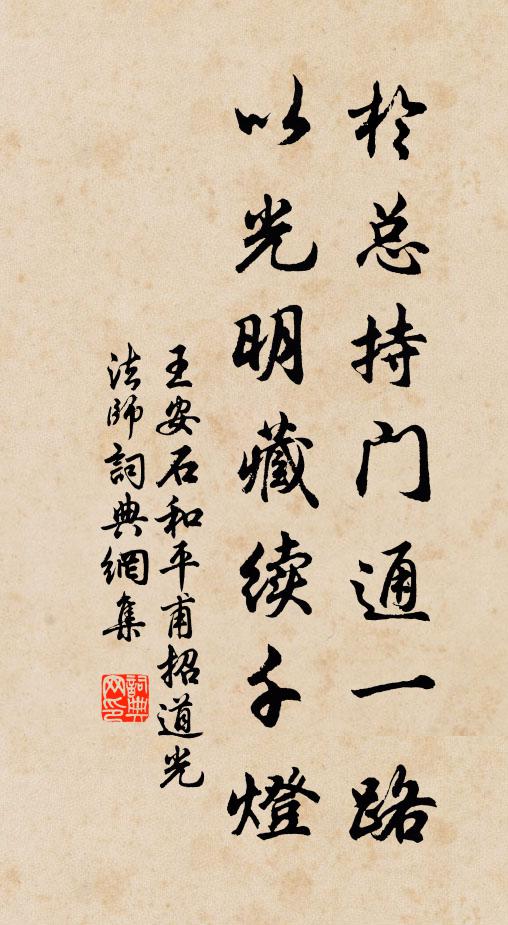 於总持门通一路
以光明藏续千燈
王安石和平甫招道光
法師詞典網集
詞典
网印